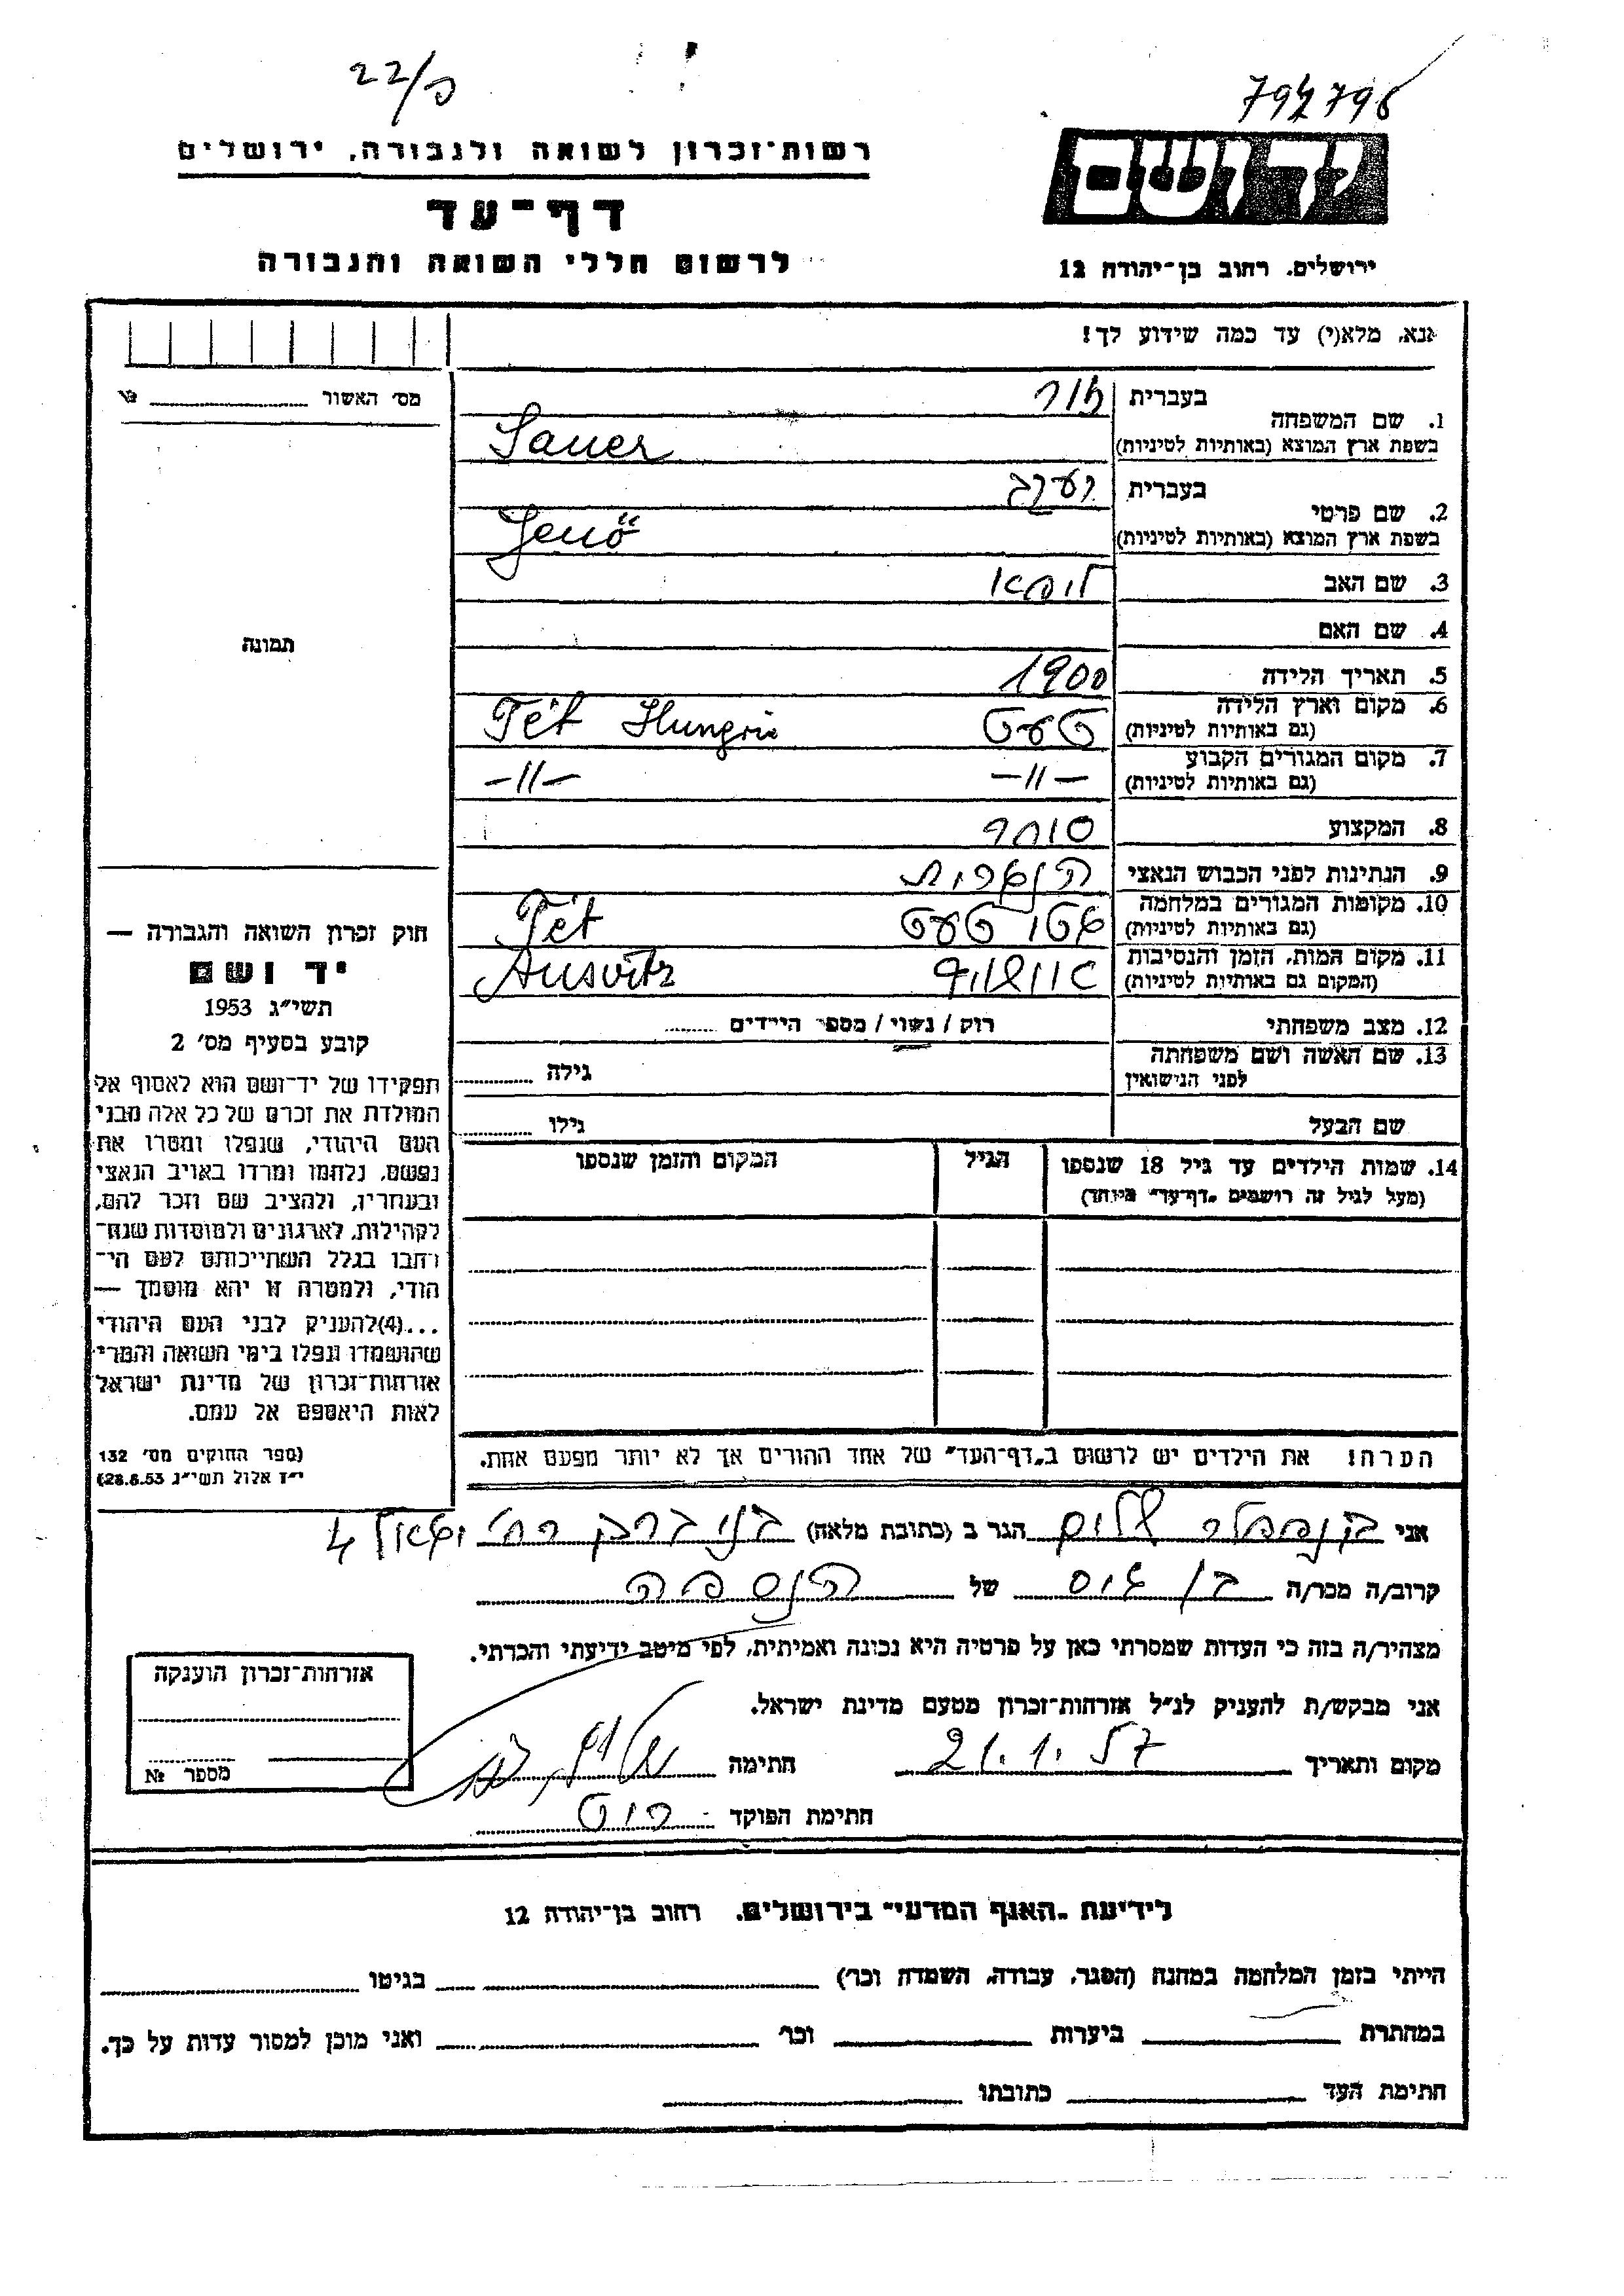 22/ס
794796
רשות־זכרון לשואה ולגבורה, ירושלים
דף־עד
לרשום חללי השואה והגבורה
יד ושם
ירושלים, רחוב בן־יהודה 12
אנא, מלא(י) עד כמה שידוע לך!
מס׳ האשור №
1. שם המשפחה
בעברית
בשפת ארץ המוצא (באותיות לטיניות) Sauer
2. שם פרטי
בעברית
בשפת ארץ המוצא (באותיות לטיניות) Jenő
3. שם האב
4. שם האם
5. תאריך הלידה 1900
6. מקום וארץ הלידה טעט Tét Hungria
(גם באותיות לטיניות)
7. מקום המגורים הקבוע -11- -11-
(גם באותיות לטיניות)
8. המקצוע סוחר
9. הנתינות לפני הכבוש הנאצי הונגרית
10. מקומות המגורים במלחמה גטו טעט Tét
(גם באותיות לטיניות)
11. מקום המות, הזמן והנסיבות אושויץ Ausvitz
(המקום גם באותיות לטיניות)
12. מצב משפחתי רוק / נשוי / מספר הילדים
13. שם האשה ושם משפחתה
לפני הנישואין גילה
שם הבעל גילו
תמונה
חוק זכרון השואה והגבורה —
יד ושם
תשי״ג 1953
קובע בסעיף מס׳ 2
תפקידו של יד־ושם הוא לאסוף אל
המולדת את זכרם של כל אלה מבני
העם היהודי, שנפלו ומסרו את
נפשם, נלחמו ומרדו באויב הנאצי
ובעוזריו, ולהציב שם וזכר להם,
לקהילות, לארגונים ולמוסדות שנח־
רבו בגלל השתייכותם לעם הי־
הודי, ולמטרה זו יהא מוסמך —
...(4)להעניק לבני העם היהודי
שהושמדו ונפלו בימי השואה והמרי
אזרחות־זכרון של מדינת ישראל
לאות היאספם אל עמם.
(ספר החוקים מס׳ 132
י״ז אלול תשי״ג 28.8.53)
14. שמות הילדים עד גיל 18 שנספו הגיל המקום והזמן שנספו
(מעל לגיל זה רושמים „דף־עד״ מיוחד)
הערה! את הילדים יש לרשום ב„דף־העד״ של אחד ההורים אך לא יותר מפעם אחת.
אני שלום הגר ב (כתובת מלאה) בני ברק רח׳ 4
קרוב/ה מכר/ה בן גיס של הנספה
מצהיר/ה בזה כי העדות שמסרתי כאן על פרטיה היא נכונה ואמיתית, לפי מיטב ידיעתי והכרתי.
אני מבקש/ת להעניק לנ״ל אזרחות־זכרון מטעם מדינת ישראל.
מקום ותאריך 21.1.57 חתימה
חתימת הפוקד
אזרחות־זכרון הוענקה
מספר №
לידיעת „האגף המדעי״ בירושלים, רחוב בן־יהודה 12
הייתי בזמן המלחמה במחנה (הסגר, עבודה, השמדה וכו׳) בגיטו
במחתרת ביערות וכו׳ ואני מוכן למסור עדות על כך.
חתימת העד כתובתו